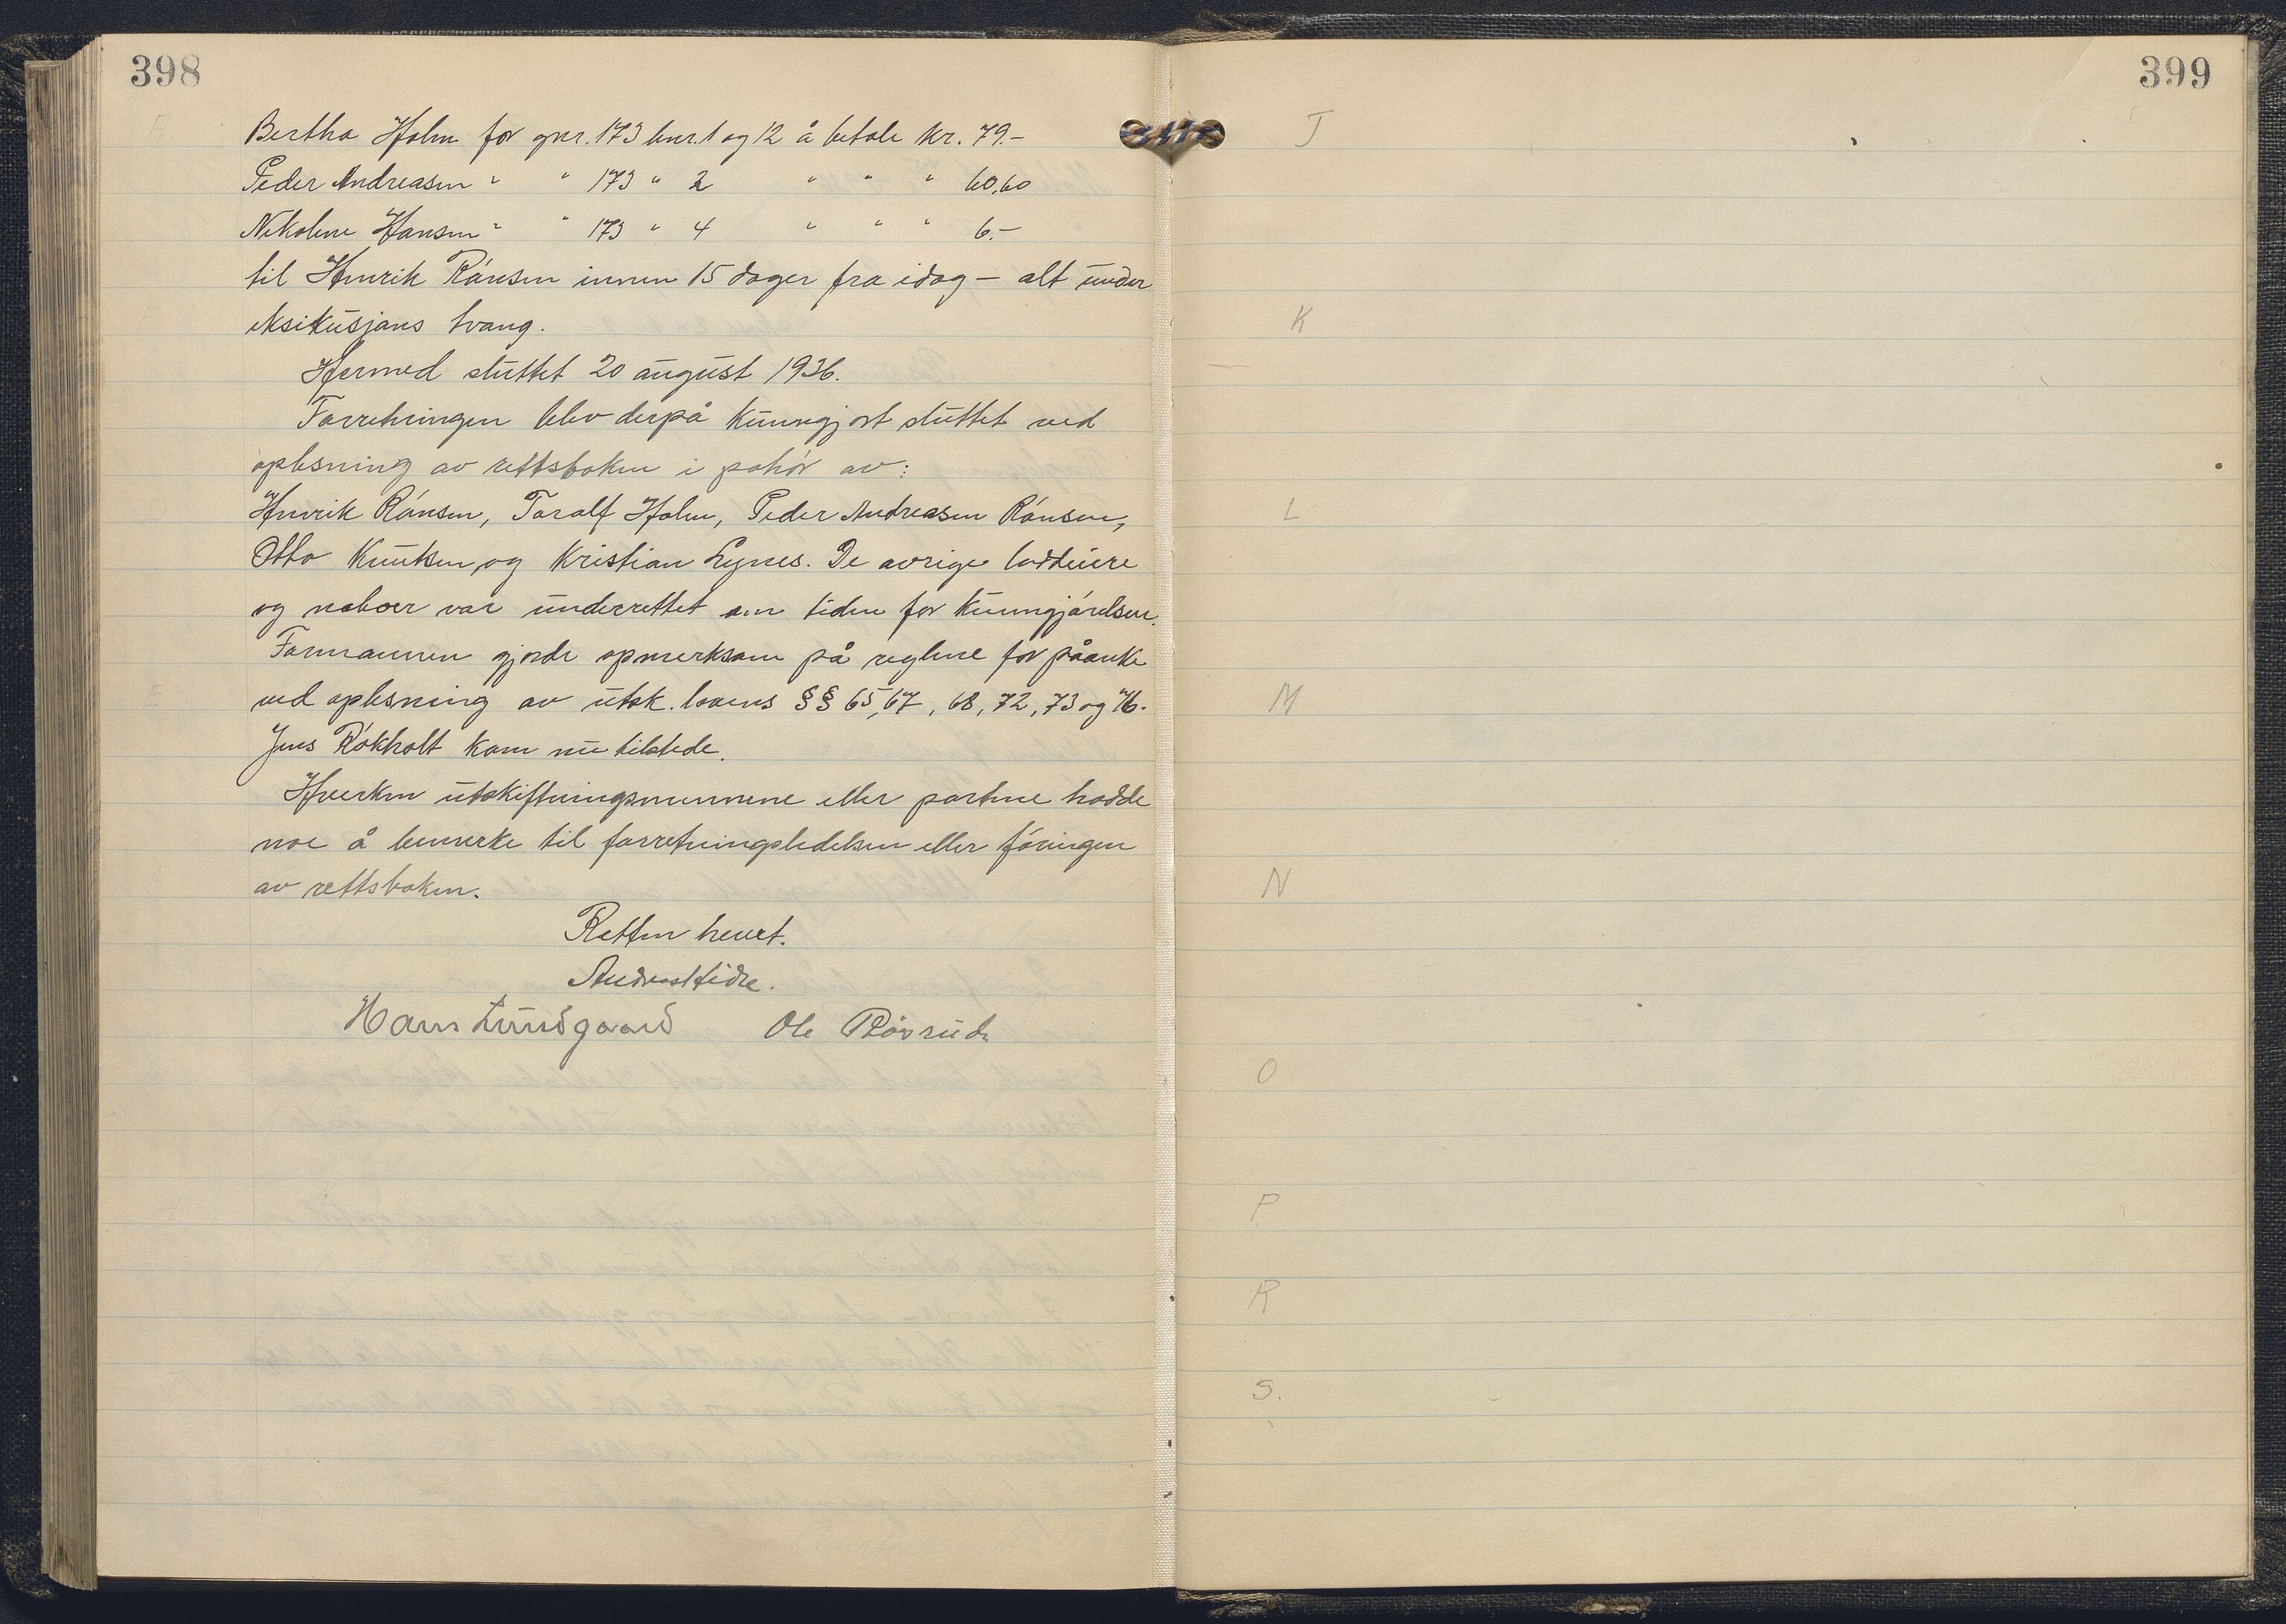 398
Bertha Holm for gnr. 173 bnr. 1 og 12 å betale kr. 79.-
Peder Andreasen " " 173 " 2 " " " 60,60
Nikoline Hansen " " 173 " 4 " " " 6.-
til Henrik Rønsen innen 15 dager fra idag - alt under
eksikusjons tvang.
Hermed sluttet 20 august 1936.
Forretningen blev derpå kunngjort sluttet ved
oplesning av rettsboken i påhør av:
Henrik Rønsen, Toralf Holm, Peder Andreasen Rønsen,
Otto Knutsen og Kristian Lynes. De øvrige lodd­eiere
og naboer var underrettet om tiden for kunngjørelsen.
Formannen gjorde opmerksom på reglene for påanke
ved oplesning av utsk. lovens §§ 65, 67, 68, 72, 73 og 76.
Jens Røkholt kom nu tilstede.
Hverken utskiftningsmennene eller partene hadde
noe å bemerke til forretningsledelsen eller føringen
av rettsboken.
Retten hevet.
Andreas Lidre.
Hans Lundgaard Ole Røsrud
399
J
K
L
M
N
O
P
R
S.